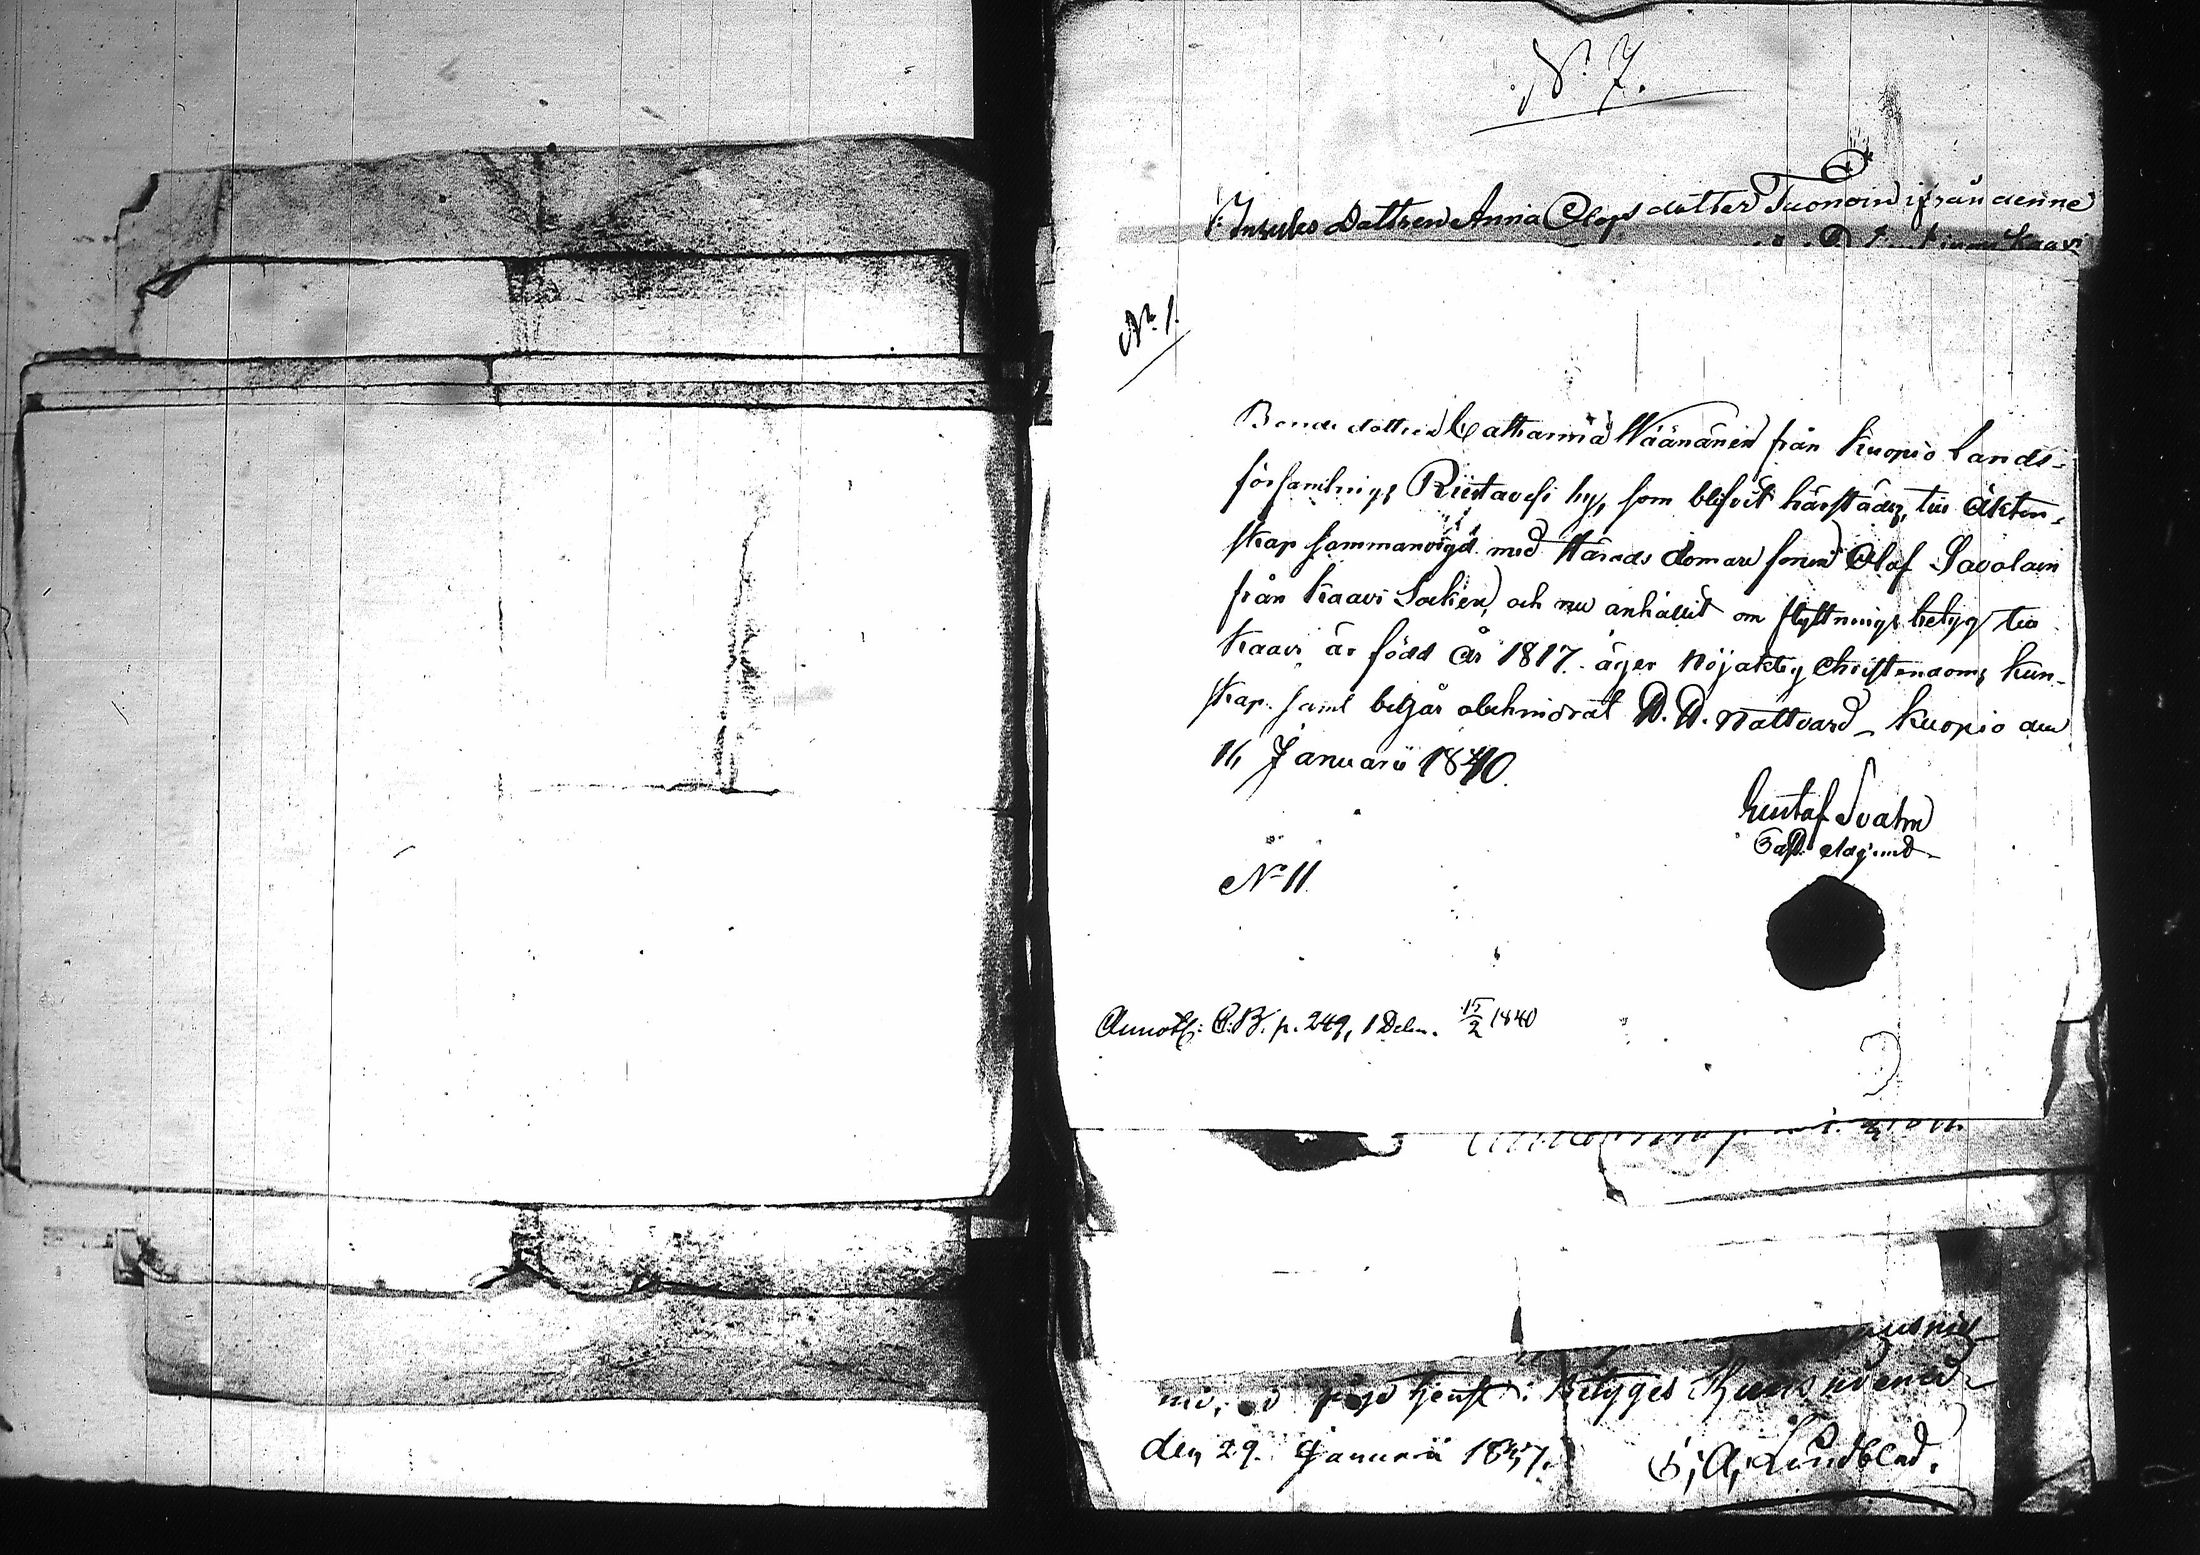 N:o 7.
Inhyses Dottren Anna Olofsdotter Tuonoin ifrån denne
Kaavi
N:o 1.
Bonde dottren Catharina Wäänänen från Kuopio Lands-
församlings Riistavesi by, som blifvit härstädes till äkten-
skap sammanvigd med Härads domare sonen Olof Savolain
från Kaavi Socken, och nu anhållit om flyttnings betyg till
Kaavi är född år 1817. äger nöjaktig Christendoms kun-
skap samt begår obehindrat D. D. Nattvard _ Kuopio den
16 Januarii 1840.
Gustaf Svahn
Past. Adjunct.
N:o 11
Annot: C.B. p. 249, 1 Delen. 15/2 1840
betyges
den 29. Januarii 1837.
Lundblad.